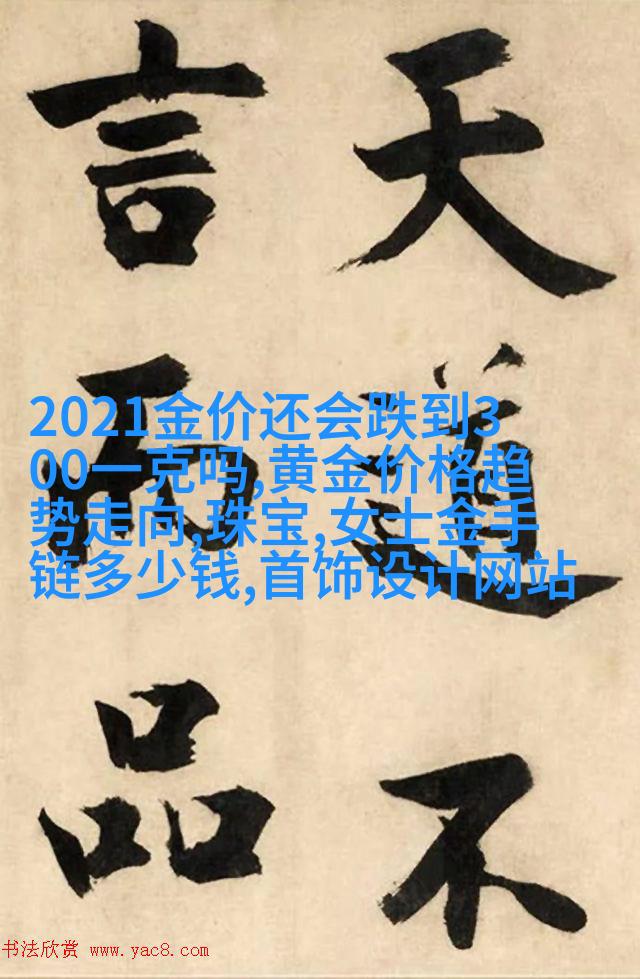 天道不
言而品
2021金价还会跌到3
00一克吗,黄金价格趋
势走向,珠宝,女士金手
链多少钱,首饰设计网站
书法欣赏 www.yac8.com